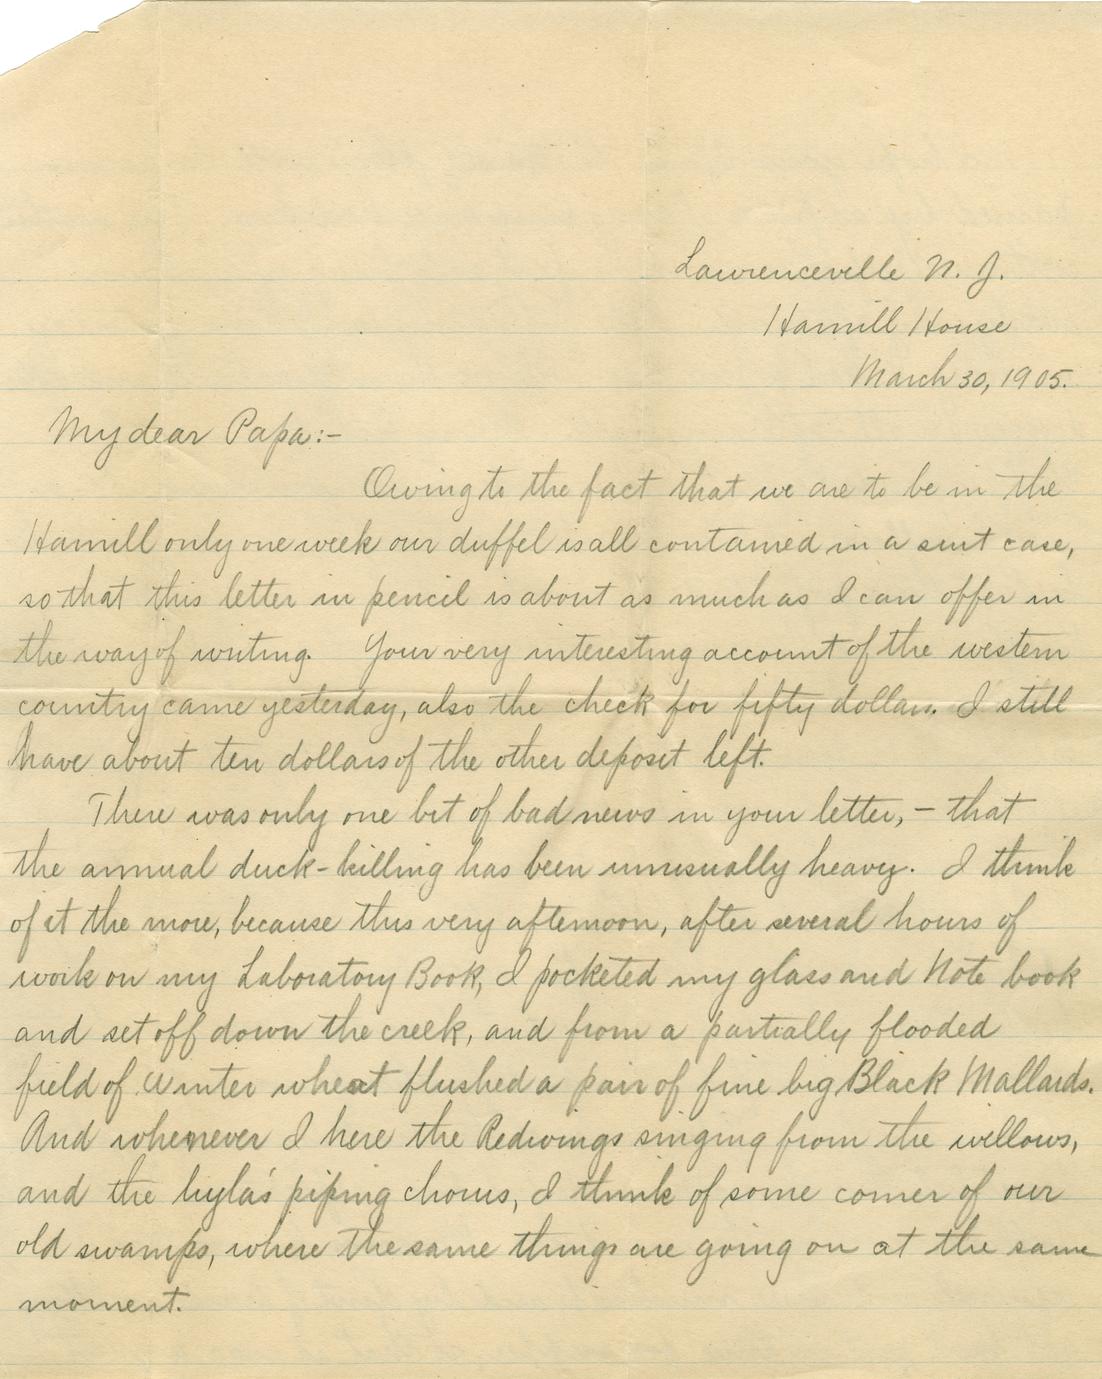 Lawrenceville N. J.
Hamill House
March 30, 1905.
My dear Papa:-
Owing to the fact that we are to be in the
Hamill only one week our duffel is all contained in a suit case,
so that this letter in pencil is about as much as I can offer in
the way of writing. Your very interesting account of the western
country came yesterday, also the check for fifty dollars. I still
have about ten dollars of the other deposit left.
There was only one bit of bad news in your letter, - that
the annual duck-killing has been unusually heavy. I think
of it the more, because this very afternoon, after several hours of
work on my Laboratory Book, I pocketed my glass and Note book
and set off down the creek, and from a partially flooded
field of winter wheat flushed a pair of fine big Black Mallards.
And whenever I here the Redwings singing from the willows,
and the hyla's piping chorus, I think of some corner of our
old swamps, where the same things are going on at the same
moment.